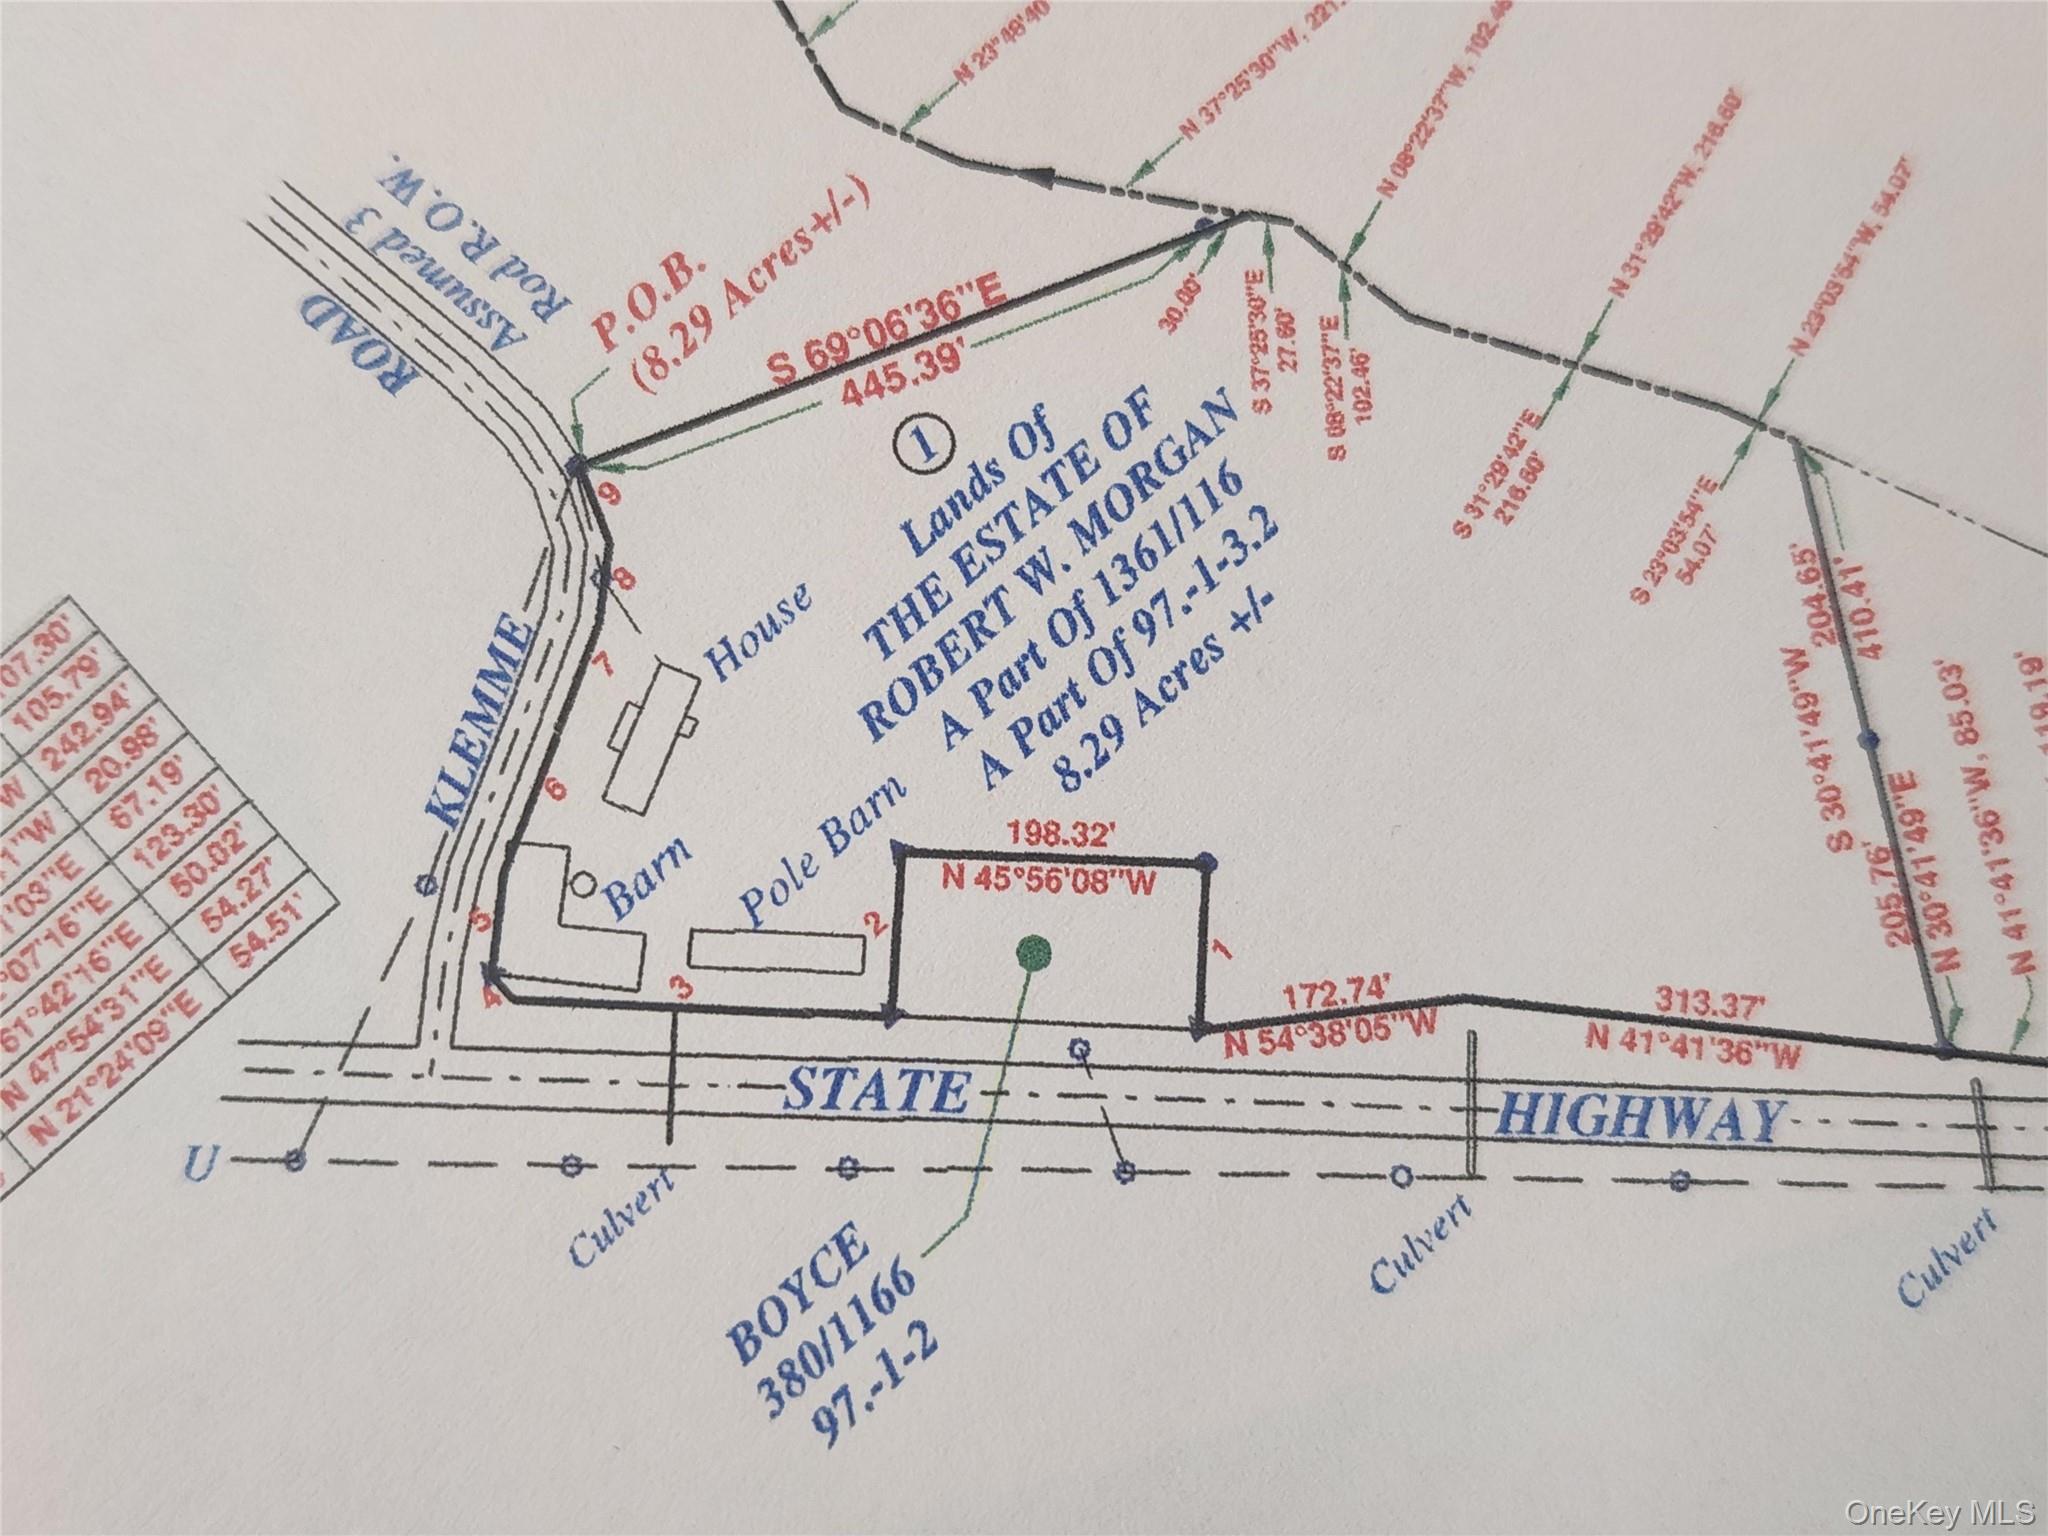 N 23°48'40
N 37°25'30"W, 221.
N 08°22'37"W, 102.46
N 31°29'42"W, 216.60'
N 23°03'54"W, 54.07'
Assumed 3
Rod R.O.W.
ROAD
KLEMME
P.O.B.
(8.29 Acres+/-)
S 69°06'36"E
445.39'
30.00'
S 37°25'30"E
27.60'
S 08°22'37"E
102.46'
S 31°29'42"E
216.60'
S 23°03'54"E
54.07'
1
Lands Of
THE ESTATE OF
ROBERT W. MORGAN
A Part Of 1361/116
A Part Of 97.-1-3.2
8.29 Acres +/-
9
8
7
6
5
4
3
2
1
House
Barn
Pole Barn
198.32'
N 45°56'08"W
172.74'
N 54°38'05"W
313.37'
N 41°41'36"W
204.65'
410.41'
S 30°41'49"W
205.76'
N 30°41'49"E
N 41°41'36"W, 85.03'
N
119.19'
07.30'
105.79'
W 242.94'
1"W 20.98'
1'03"E 67.19'
°07'16"E 123.30'
61°42'16"E 50.02'
N 47°54'31"E 54.27'
N 21°24'09"E 54.51'
STATE
HIGHWAY
U
Culvert
Culvert
Culvert
BOYCE
380/1166
97.-1-2
OneKey MLS